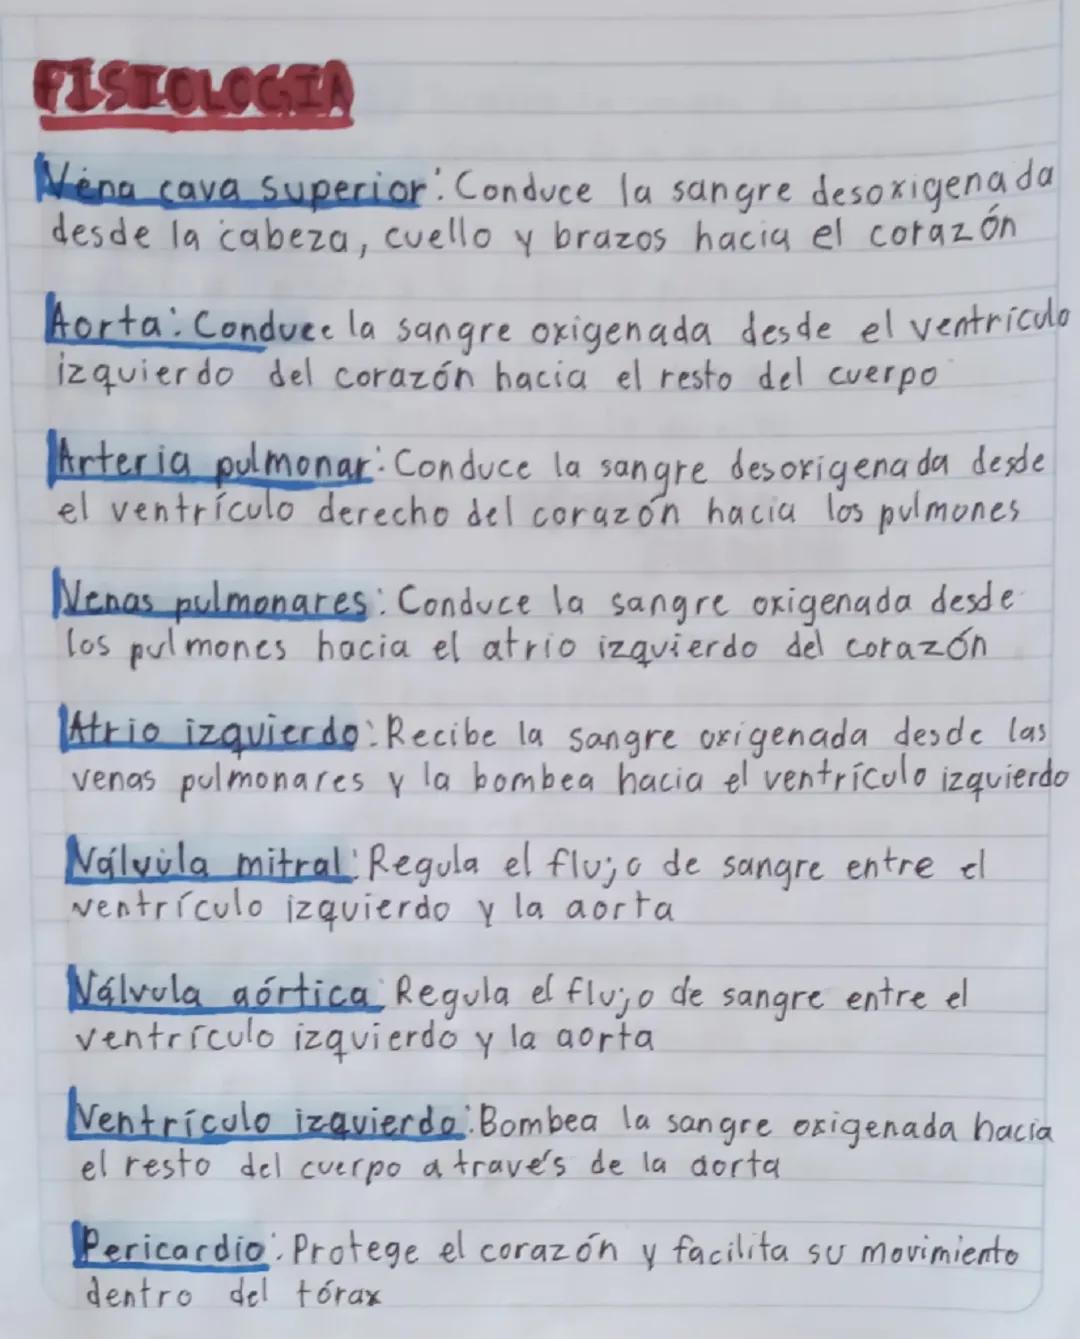 FISIOLOGIA
Vena cava superior: Conduce la sangre desoxigenada
desde la cabeza, cuello y brazos hacia el corazón
Aorta: Conduce la sangre oxigenada desde el ventrículo
izquierdo del corazón hacia el resto del cuerpo
Arteria pulmonar: Conduce la sangre desoxigenada desde
el ventrículo derecho del corazón hacia los pulmones
Venas pulmonares: Conduce la sangre oxigenada desde
los pulmones hacia el atrio izquierdo del corazón
Atrio izquierdo: Recibe la sangre oxigenada desde las
venas pulmonares y la bombea hacia el ventrículo izquierdo
Válvula mitral: Regula el flujo de sangre entre el
ventrículo izquierdo y la aorta
Válvula aórtica Regula el flujo de sangre entre el
ventrículo izquierdo y la aorta
Ventrículo izquierdo: Bombea la sangre oxigenada hacia
el resto del cuerpo a través de la aorta
Pericardio: Protege el corazón y facilita su movimiento
dentro del tórax